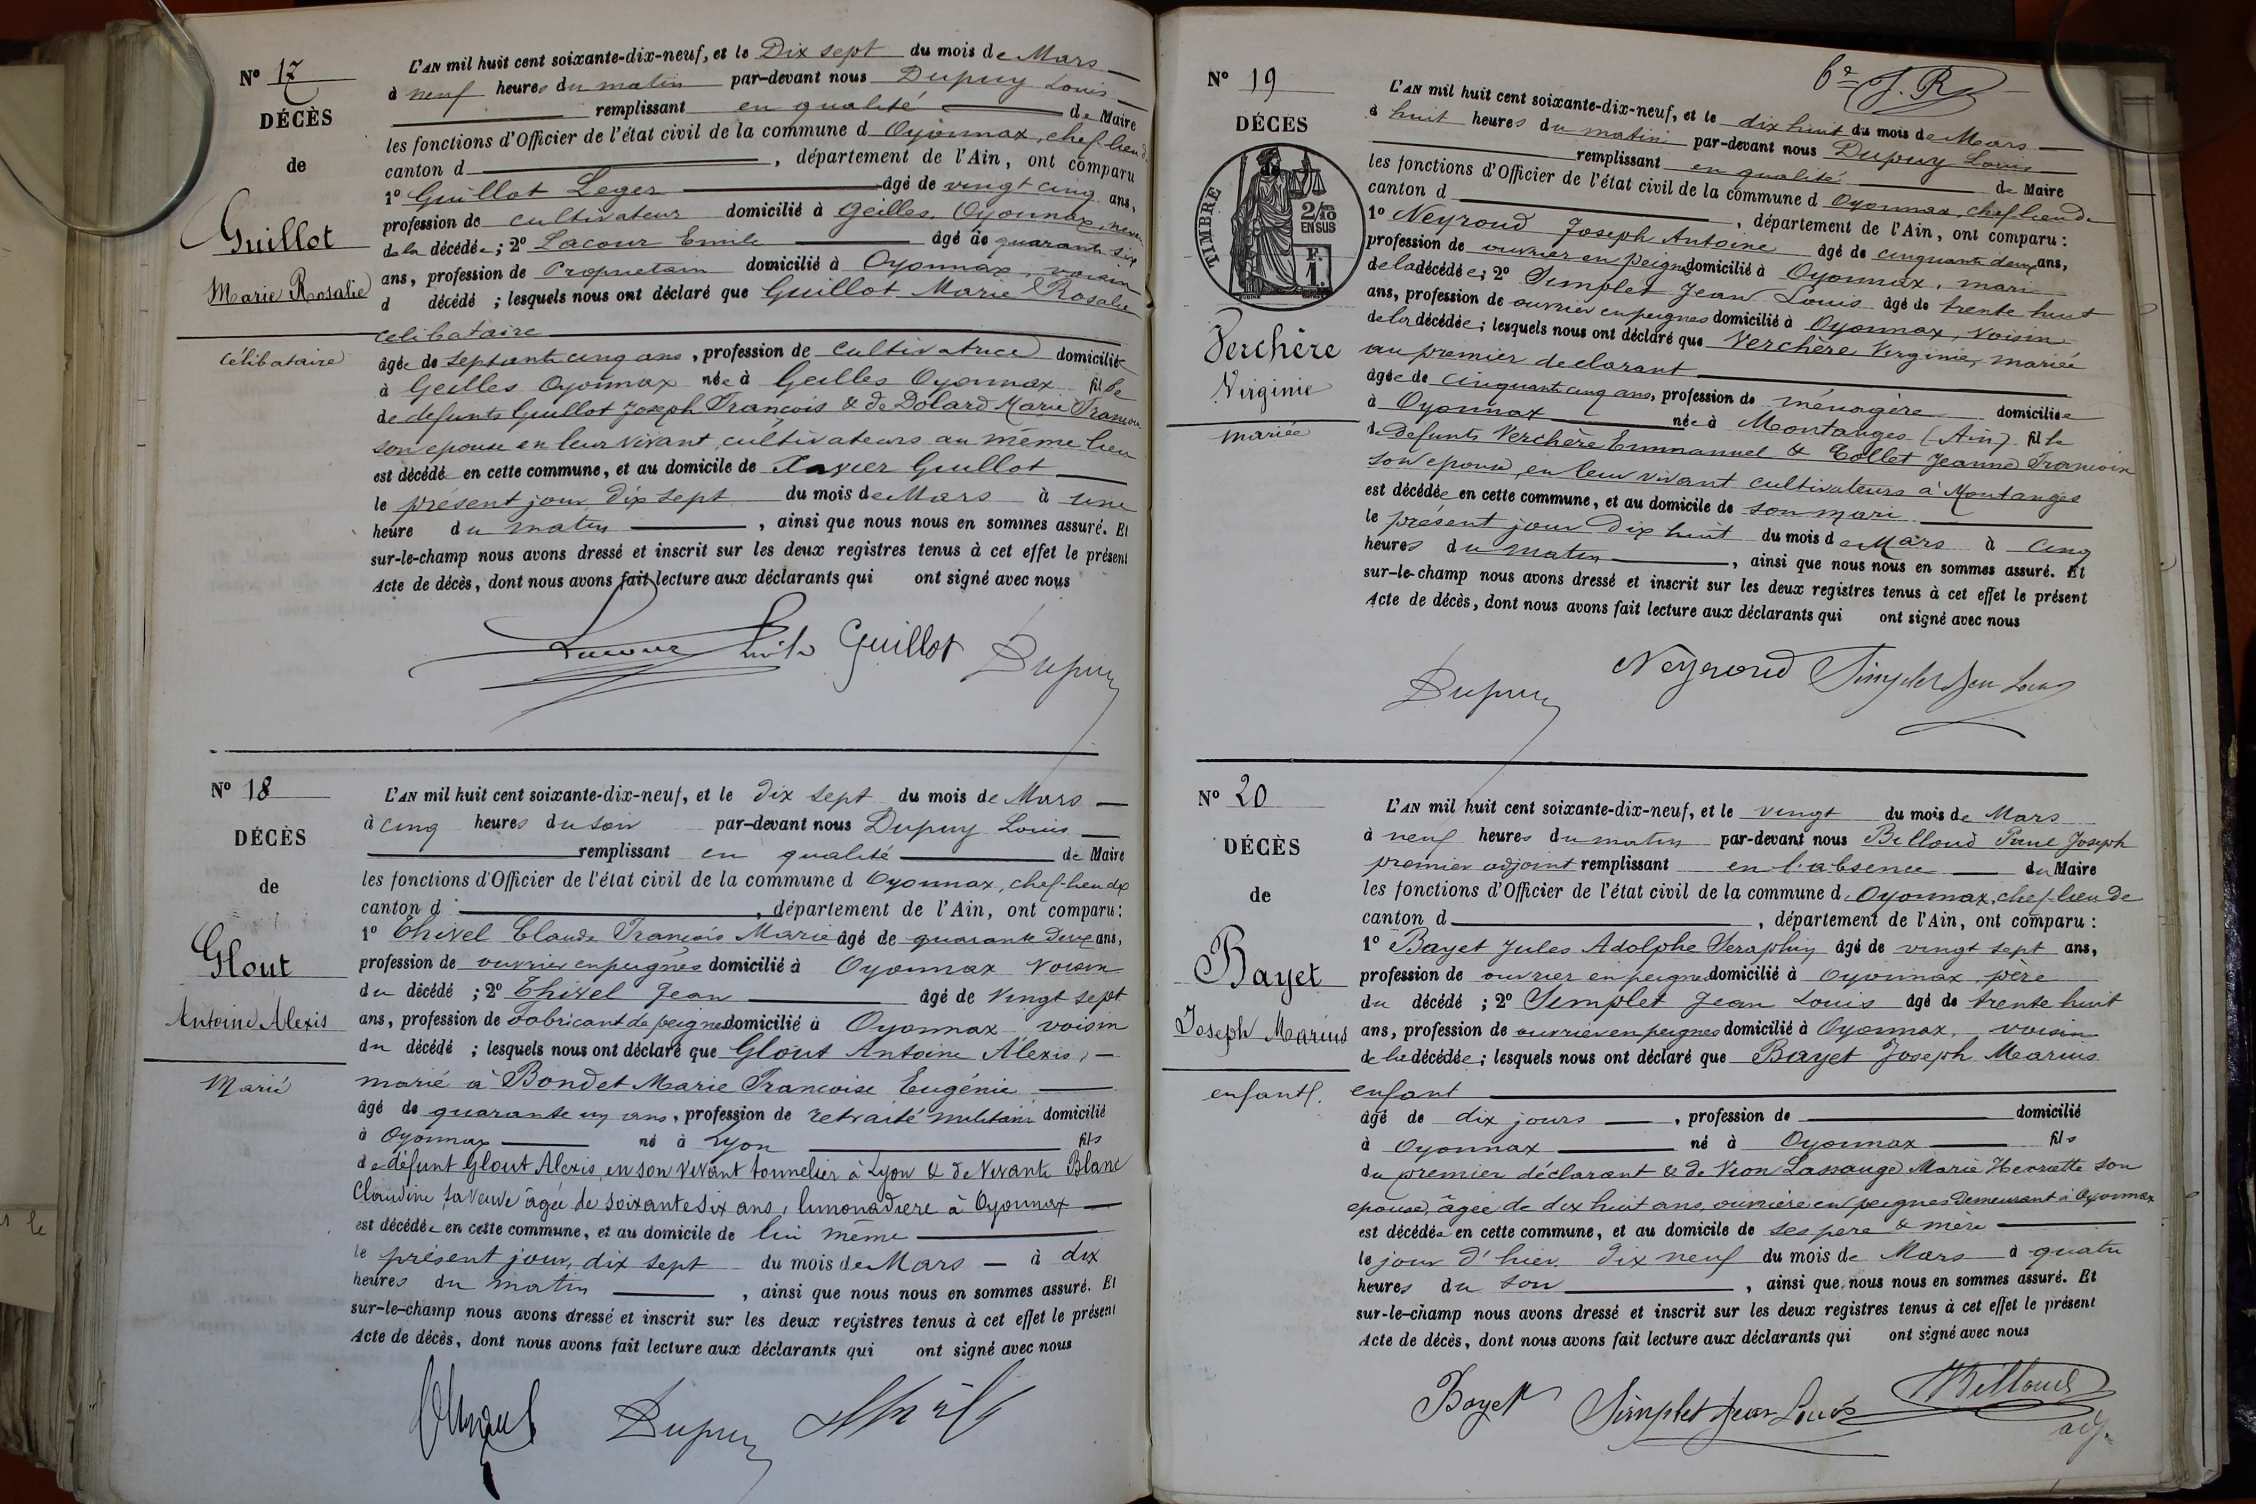 N° 17
DÉCÈS
de
Guillot
Marie Rosalie
célibataire
L'AN mil huit cent soixante-dix-neuf, et le Dix sept du mois de Mars
à neuf heures du matin par-devant nous Dupuy Louis
remplissant en qualité de Maire
les fonctions d'Officier de l'état civil de la commune d Oyonnax, chef-lieu de
canton d , département de l'Ain, ont comparu
1° Guillot Leger âgé de vingt cinq ans,
profession de cultivateur domicilié à Geilles, Oyonnax, neveu
de la décédée; 2° Lacour Emile âgé de quarante six
ans, profession de Propriétaire domicilié à Oyonnax, voisin
d décédé ; lesquels nous ont déclaré que Guillot Marie Rosalie
célibataire
âgée de septante cinq ans, profession de cultivatrice domiciliée
à Geilles Oyonnax née à Geilles Oyonnax fille
de defunts Guillot Joseph François & de Dolard Marie Francoise
son epouse en leur vivant cultivateurs au même lieu
est décédé en cette commune, et au domicile de Xavier Guillot
le présent jour, dix sept du mois de Mars à une
heure du matin , ainsi que nous nous en sommes assuré. Et
sur-le-champ nous avons dressé et inscrit sur les deux registres tenus à cet effet le présent
Acte de décès, dont nous avons fait lecture aux déclarants qui ont signé avec nous
Lacour Emile Guillot Dupuy
N° 18
DÉCÈS
de
Glout
Antoine Alexis
Marié
L'AN mil huit cent soixante-dix-neuf, et le dix sept du mois de Mars
à cinq heures du soir par-devant nous Dupuy Louis
remplissant en qualité de Maire
les fonctions d'Officier de l'état civil de la commune d Oyonnax, chef-lieu de
canton d , département de l'Ain, ont comparu:
1° Thivel Claude François Marie âgé de quarante deux ans,
profession de ouvrier en peignes domicilié à Oyonnax voisin
du décédé ; 2° Thivel Jean âgé de vingt sept
ans, profession de fabricant de peignes domicilié à Oyonnax voisin
du décédé ; lesquels nous ont déclaré que Glout Antoine Alexis,
marié à Bondet Marie Francoise Eugénie
âgé de quarante un ans, profession de retraité militaire domicilié
à Oyonnax né à Lyon fils
de défunt Glout Alexis, en son vivant tonnelier à Lyon & de vivante Blanc
Claudine sa veuve âgée de soixante six ans, limonadiere à Oyonnax
est décédée en cette commune, et au domicile de lui même
le présent jour, dix sept du mois de Mars à dix
heures du matin , ainsi que nous nous en sommes assuré. Et
sur-le-champ nous avons dressé et inscrit sur les deux registres tenus à cet effet le présent
Acte de décès, dont nous avons fait lecture aux déclarants qui ont signé avec nous
Dupuy
N° 19
DÉCÈS
de
TIMBRE
2/10 EN SUS
F. 1.
Verchère
Virginie
mariée
L'AN mil huit cent soixante-dix-neuf, et le dix huit du mois de Mars
à huit heures du matin par-devant nous Dupuy Louis
remplissant en qualité de Maire
les fonctions d'Officier de l'état civil de la commune d Oyonnax, chef lieu de
canton d , département de l'Ain, ont comparu:
1° Neyroud Joseph Antoine âgé de cinquante deux ans,
profession de ouvrier en peignes domicilié à Oyonnax, mari
de la décédée; 2° Simplet Jean Louis âgé de trente huit
ans, profession de ouvrier en peignes domicilié à Oyonnax, voisin
de la décédée; lesquels nous ont déclaré que Verchère Virginie, mariée
au premier declarant
âgée de cinquante cinq ans, profession de ménagère domiciliée
à Oyonnax née à Montanges (Ain) fille
de Defunts Verchère Emmanuel & Collet Jeanne Francoise
son epouse, en leur vivant cultivateurs à Montanges
est décédée en cette commune, et au domicile de son mari
le présent jour Dix huit du mois de Mars à cinq
heures du matin , ainsi que nous nous en sommes assuré. Et
sur-le-champ nous avons dressé et inscrit sur les deux registres tenus à cet effet le présent
Acte de décès, dont nous avons fait lecture aux déclarants qui ont signé avec nous
Dupuy Neyroud Simplet Jean Louis
N° 20
DÉCÈS
de
Bayet
Joseph Marius
enfant.
L'AN mil huit cent soixante-dix-neuf, et le vingt du mois de Mars
à neuf heures du matin par-devant nous Billoud Paul Joseph
premier adjoint remplissant en l'absence du Maire
les fonctions d'Officier de l'état civil de la commune d Oyonnax, chef-lieu de
canton d , département de l'Ain, ont comparu :
1° Bayet Jules Adolphe Seraphin âgé de vingt sept ans,
profession de ouvrier en peignes domicilié à Oyonnax, père
du décédé ; 2° Simplet Jean Louis âgé de trente huit
ans, profession de ouvrier en peignes domicilié à Oyonnax, voisin
de la décédée; lesquels nous ont déclaré que Bayet Joseph Marius
enfant
âgé de dix jours , profession de domicilié
à Oyonnax né à Oyonnax fils
du premier déclarant & de Vion Lassauge Marie Henriette son
epouse, âgée de dix huit ans, ouvrière en peignes demeurant à Oyonnax
est décédée en cette commune, et au domicile de ses pere & mère
le jour d'hier, dix neuf du mois de Mars à quatre
heures du soir , ainsi que nous nous en sommes assuré. Et
sur-le-champ nous avons dressé et inscrit sur les deux registres tenus à cet effet le présent
Acte de décès, dont nous avons fait lecture aux déclarants qui ont signé avec nous
Bayet Simplet Jean Louis Billoud
adj.